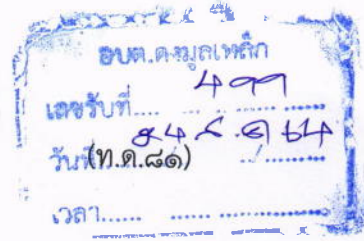 อบต.ดงมูลเหล็ก
เลขรับที่..... 499
วันที่
(ท.ด.๘๑)
เวลา......